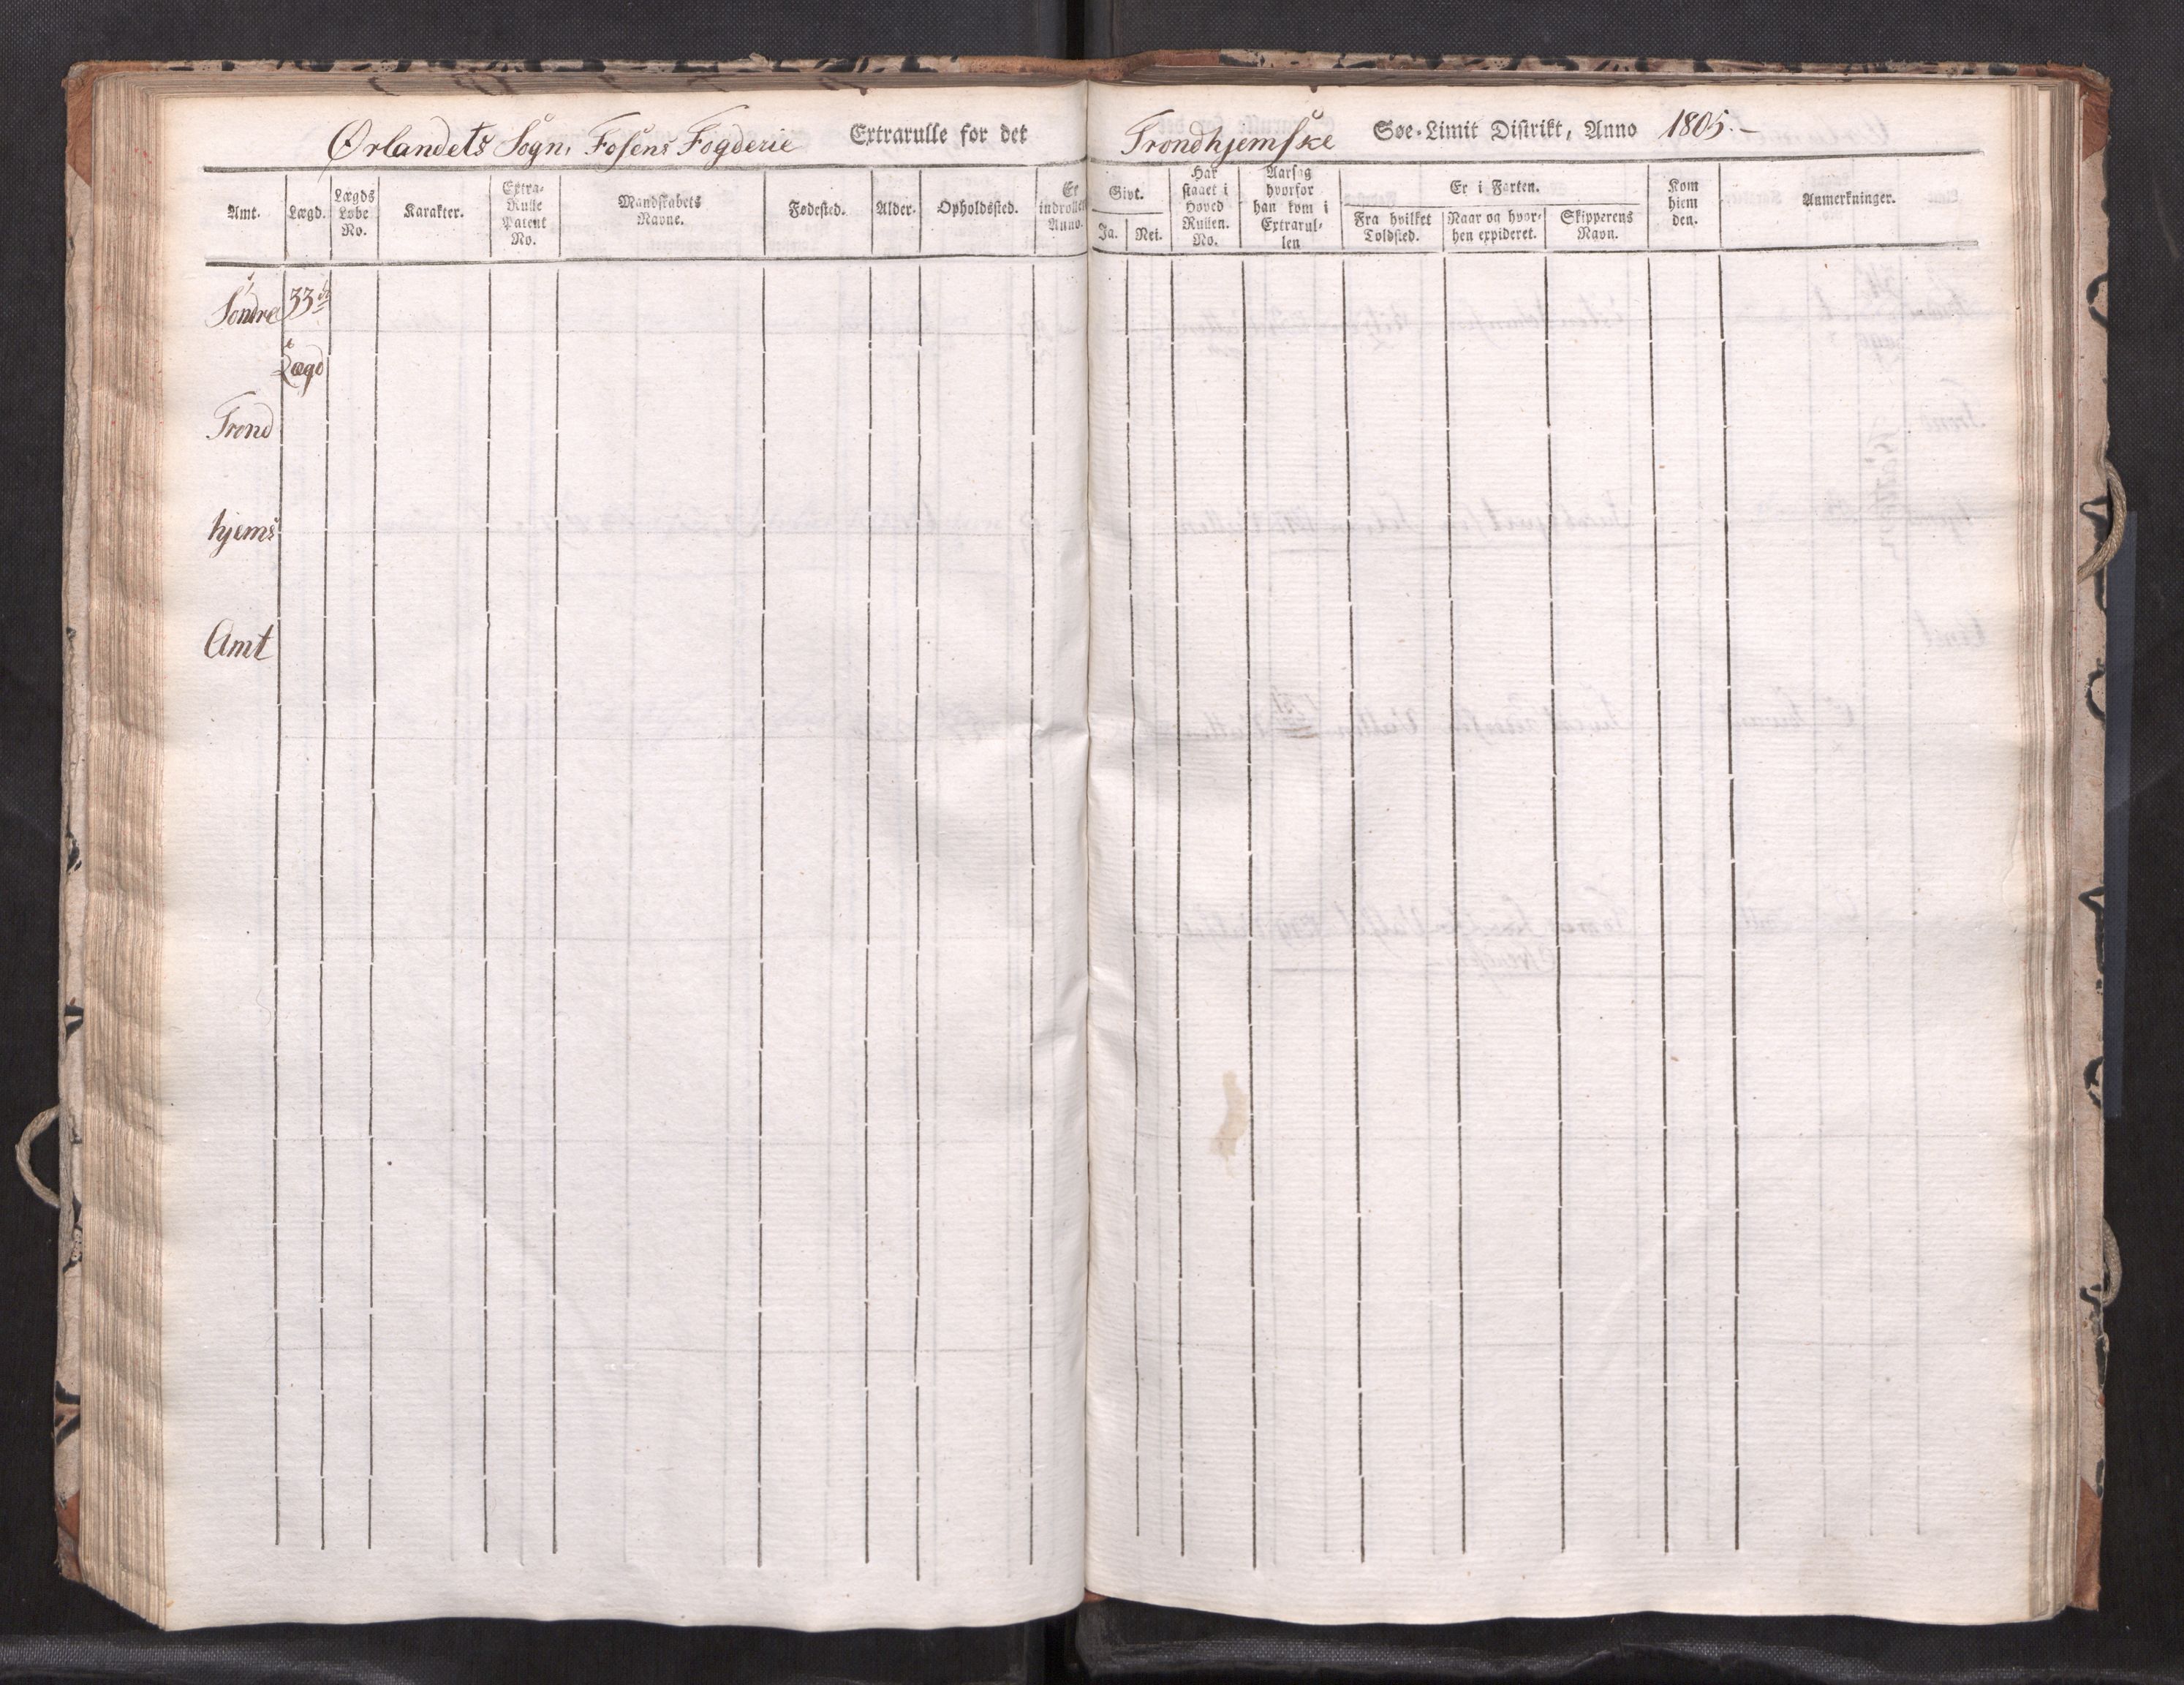 Ørlandets Sogn, Fosens Fogderie Extrarulle for det Trondhjemske Søe-Limit Distrikt, Anno 1805.-
Amt. Lægd. Lægds Løbe No. Karakter. Extra-Rulle Patent No. Mandskabets Navne. Fødested. Alder. Opholdssted. Er indrolleret Anno. Givt. Ja. Nei. Har staaet i Hoved Rullen. No. Aarsag hvorfor han kom i Extrarullen Er i Farten. Fra hvilket Toldsted. Naar og hvorhen expideret. Skipperens Navn. Kom hiem den. Anmerkninger.
Søndre 33de
Lægd
Trond
hjems
Amt